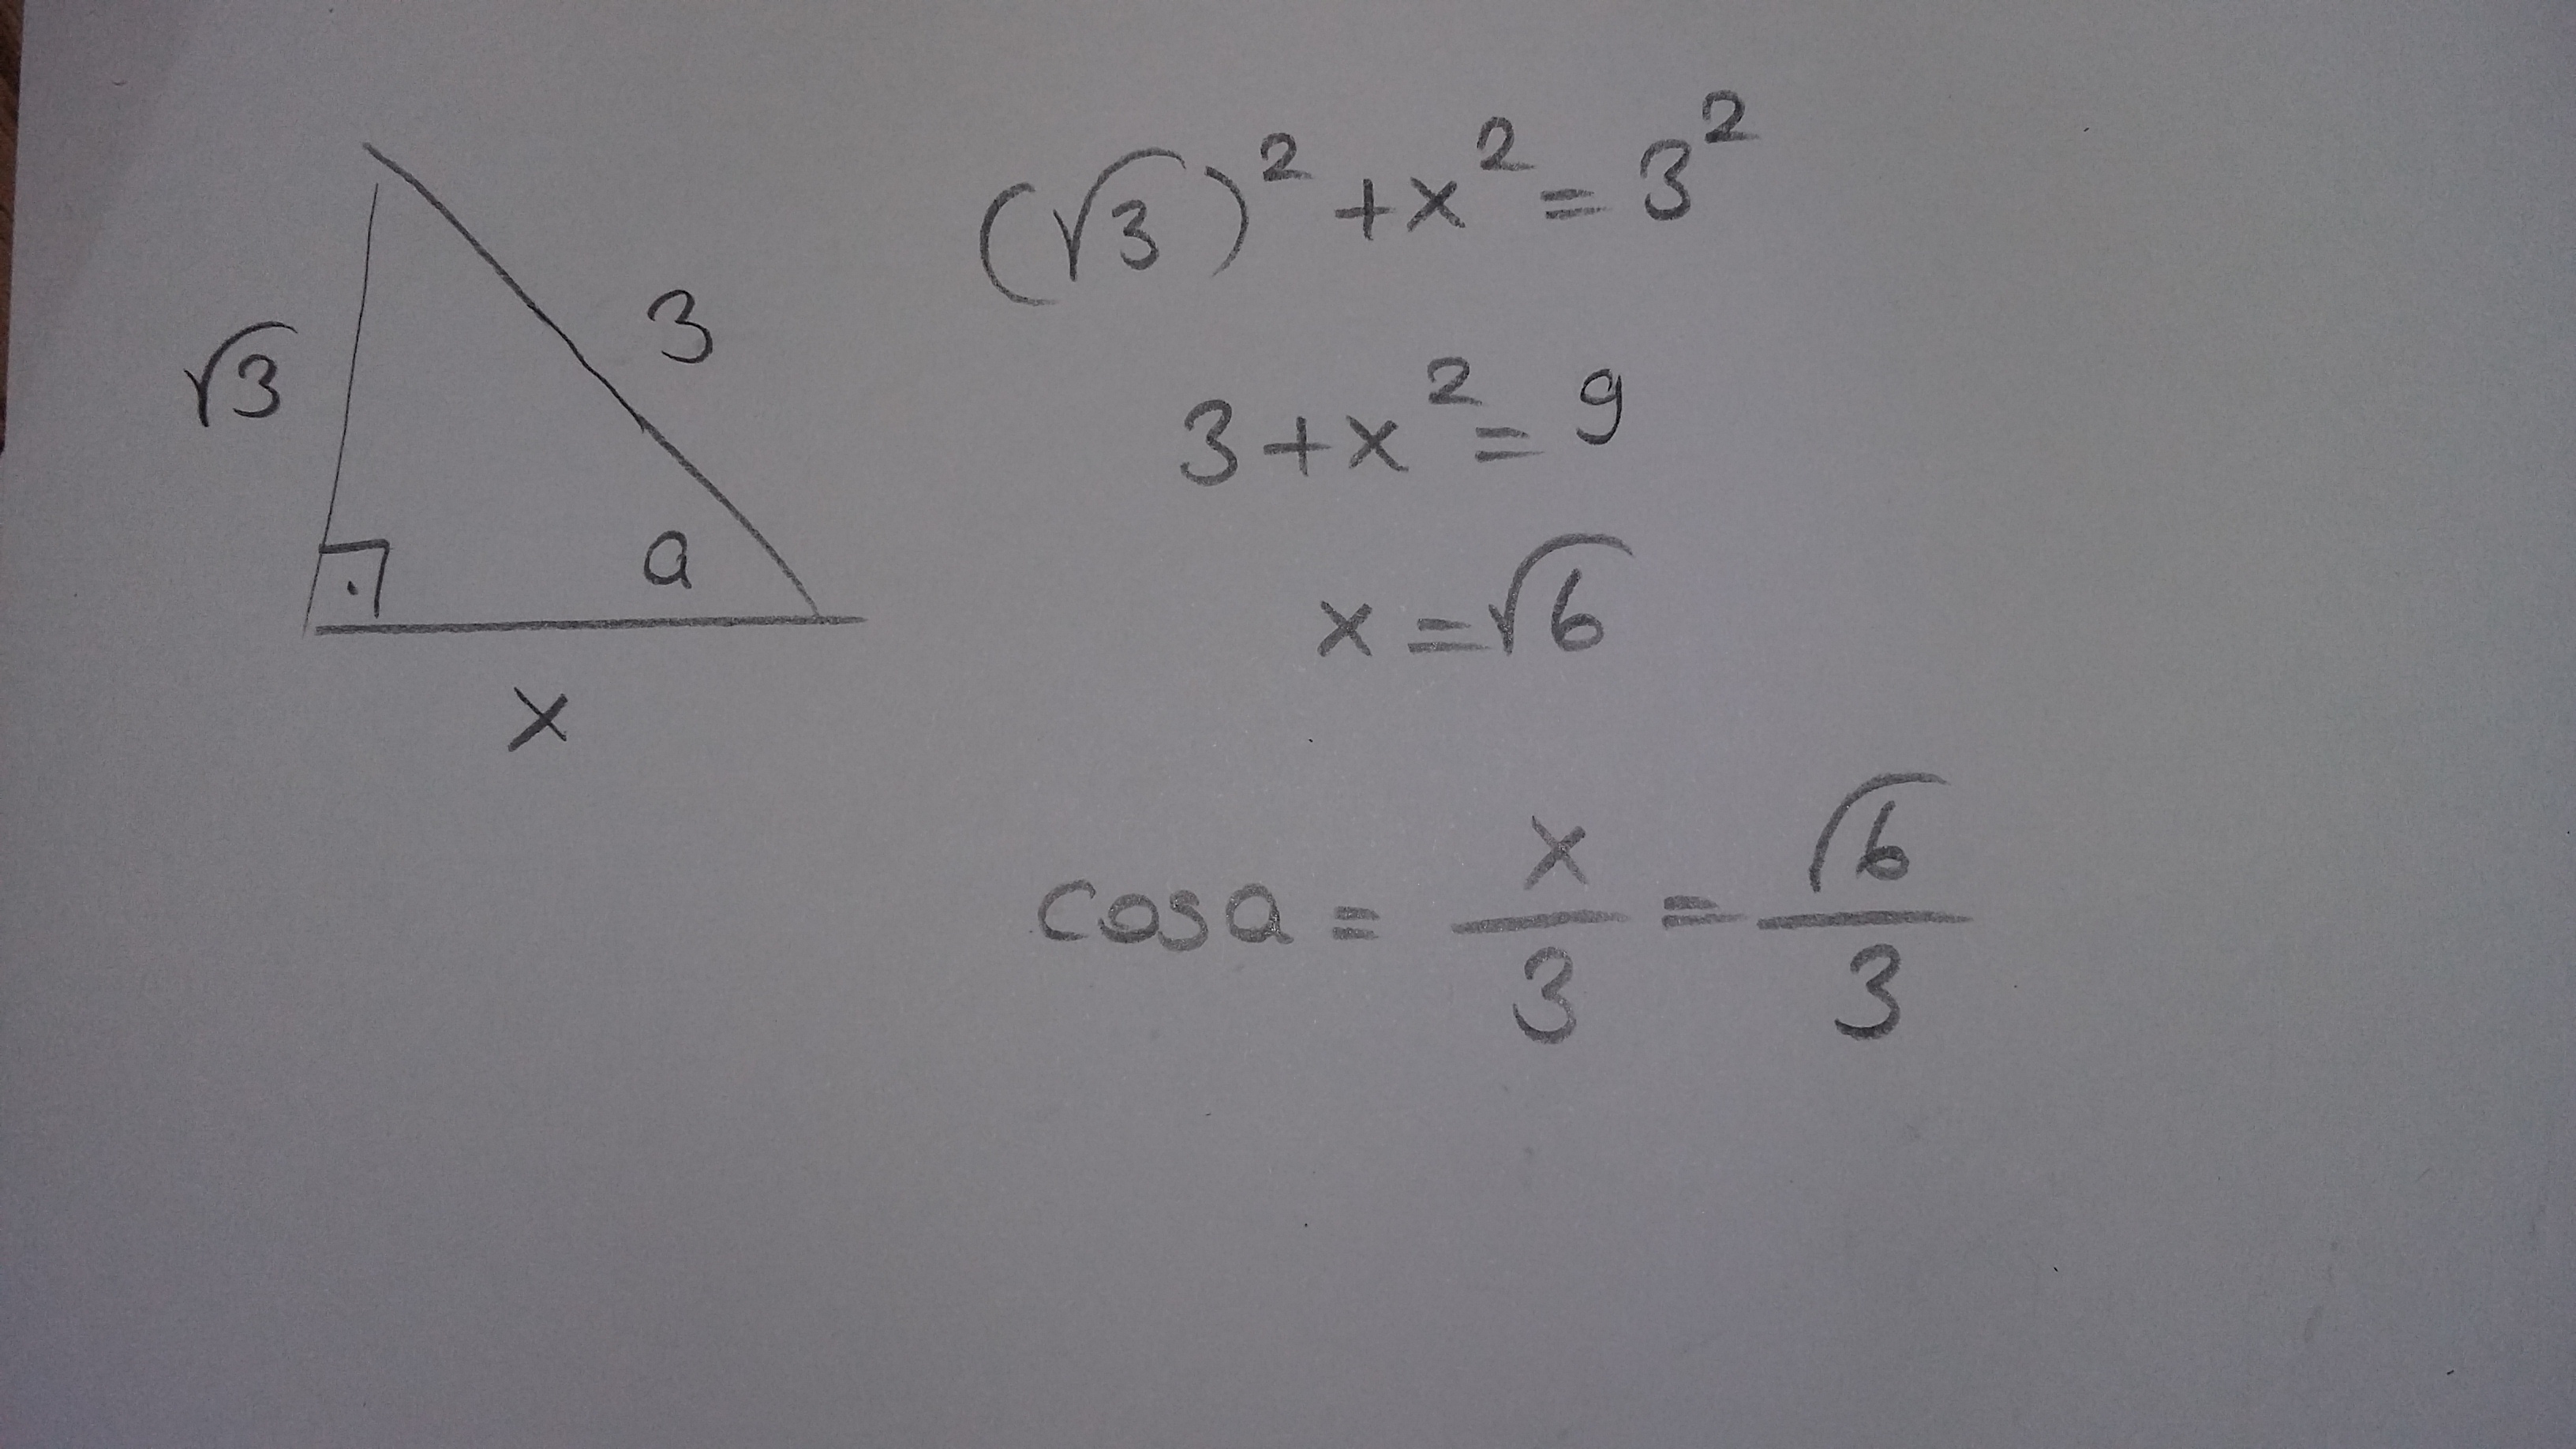 √3
3
a
x
(√3)² + x² = 3²
3 + x² = 9
x = √6
cosa = x/3 = √6/3